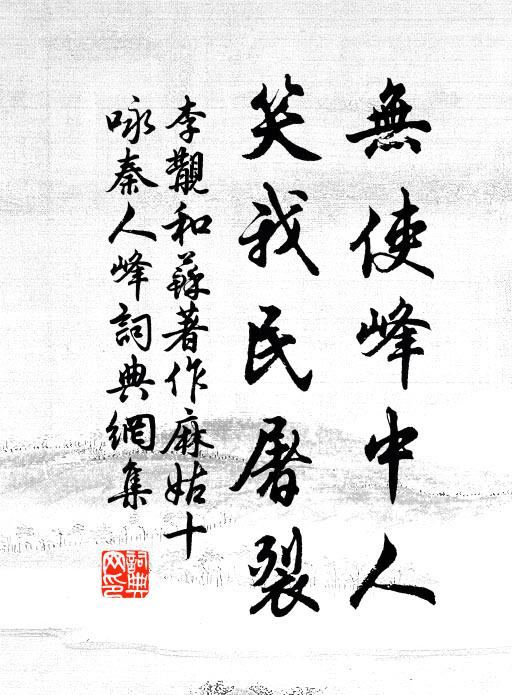 無使峰中人
笑我民屠裂
李覯和蘇著作麻姑十
咏秦人峰詞典網集
詞典
网印